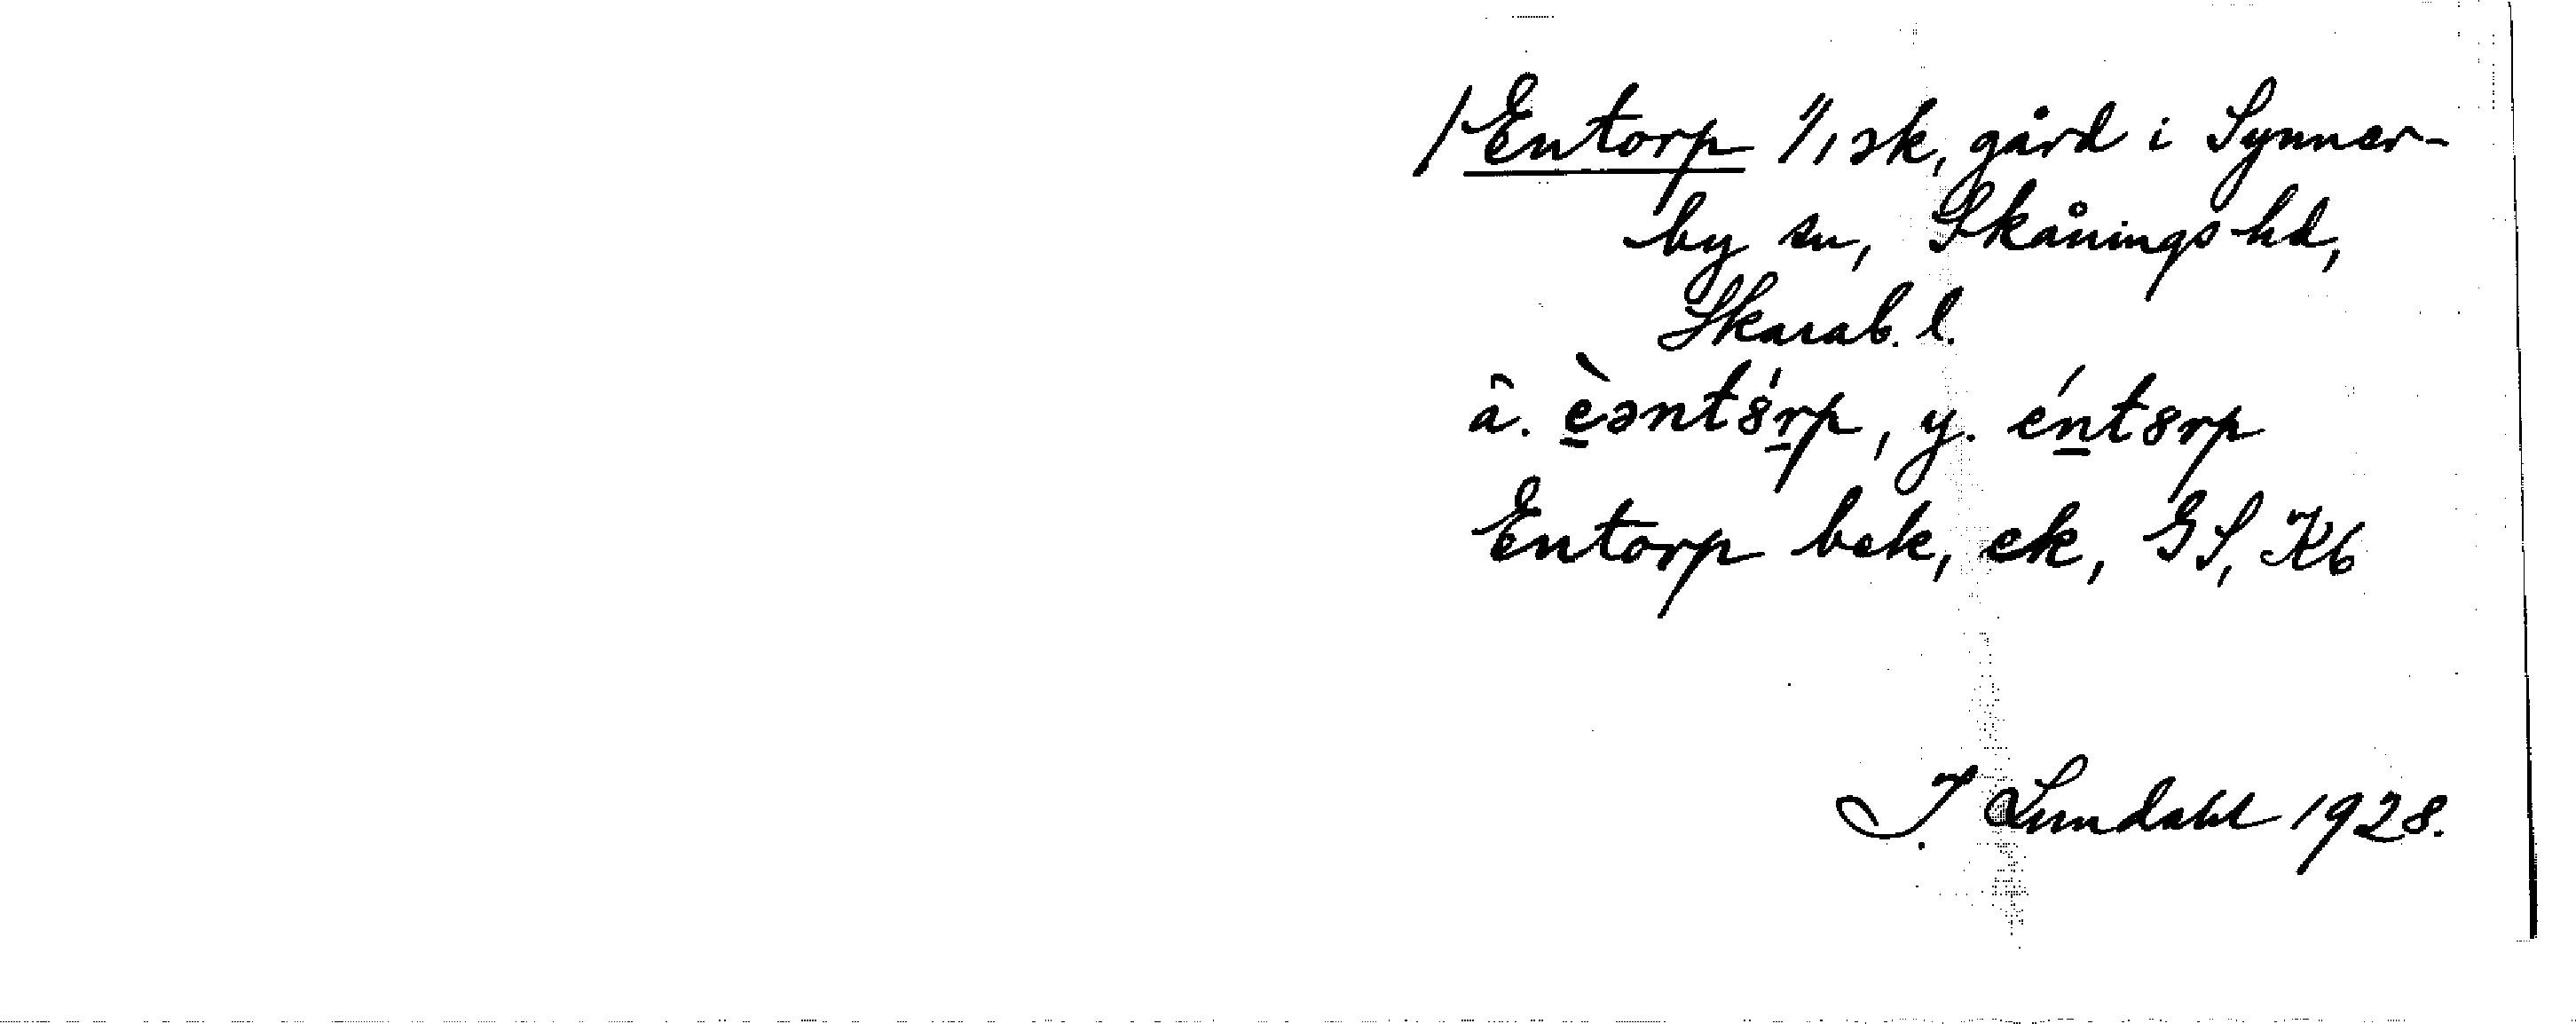 /Entorp 1/1 sk, gård i Synner-
by sn, Skånings hd,
Skarab. l.
ä. èəntȣ́rp, y. éntȣrp
Entorp bek, ek, GS, Kb
I. Lundahl 1928.